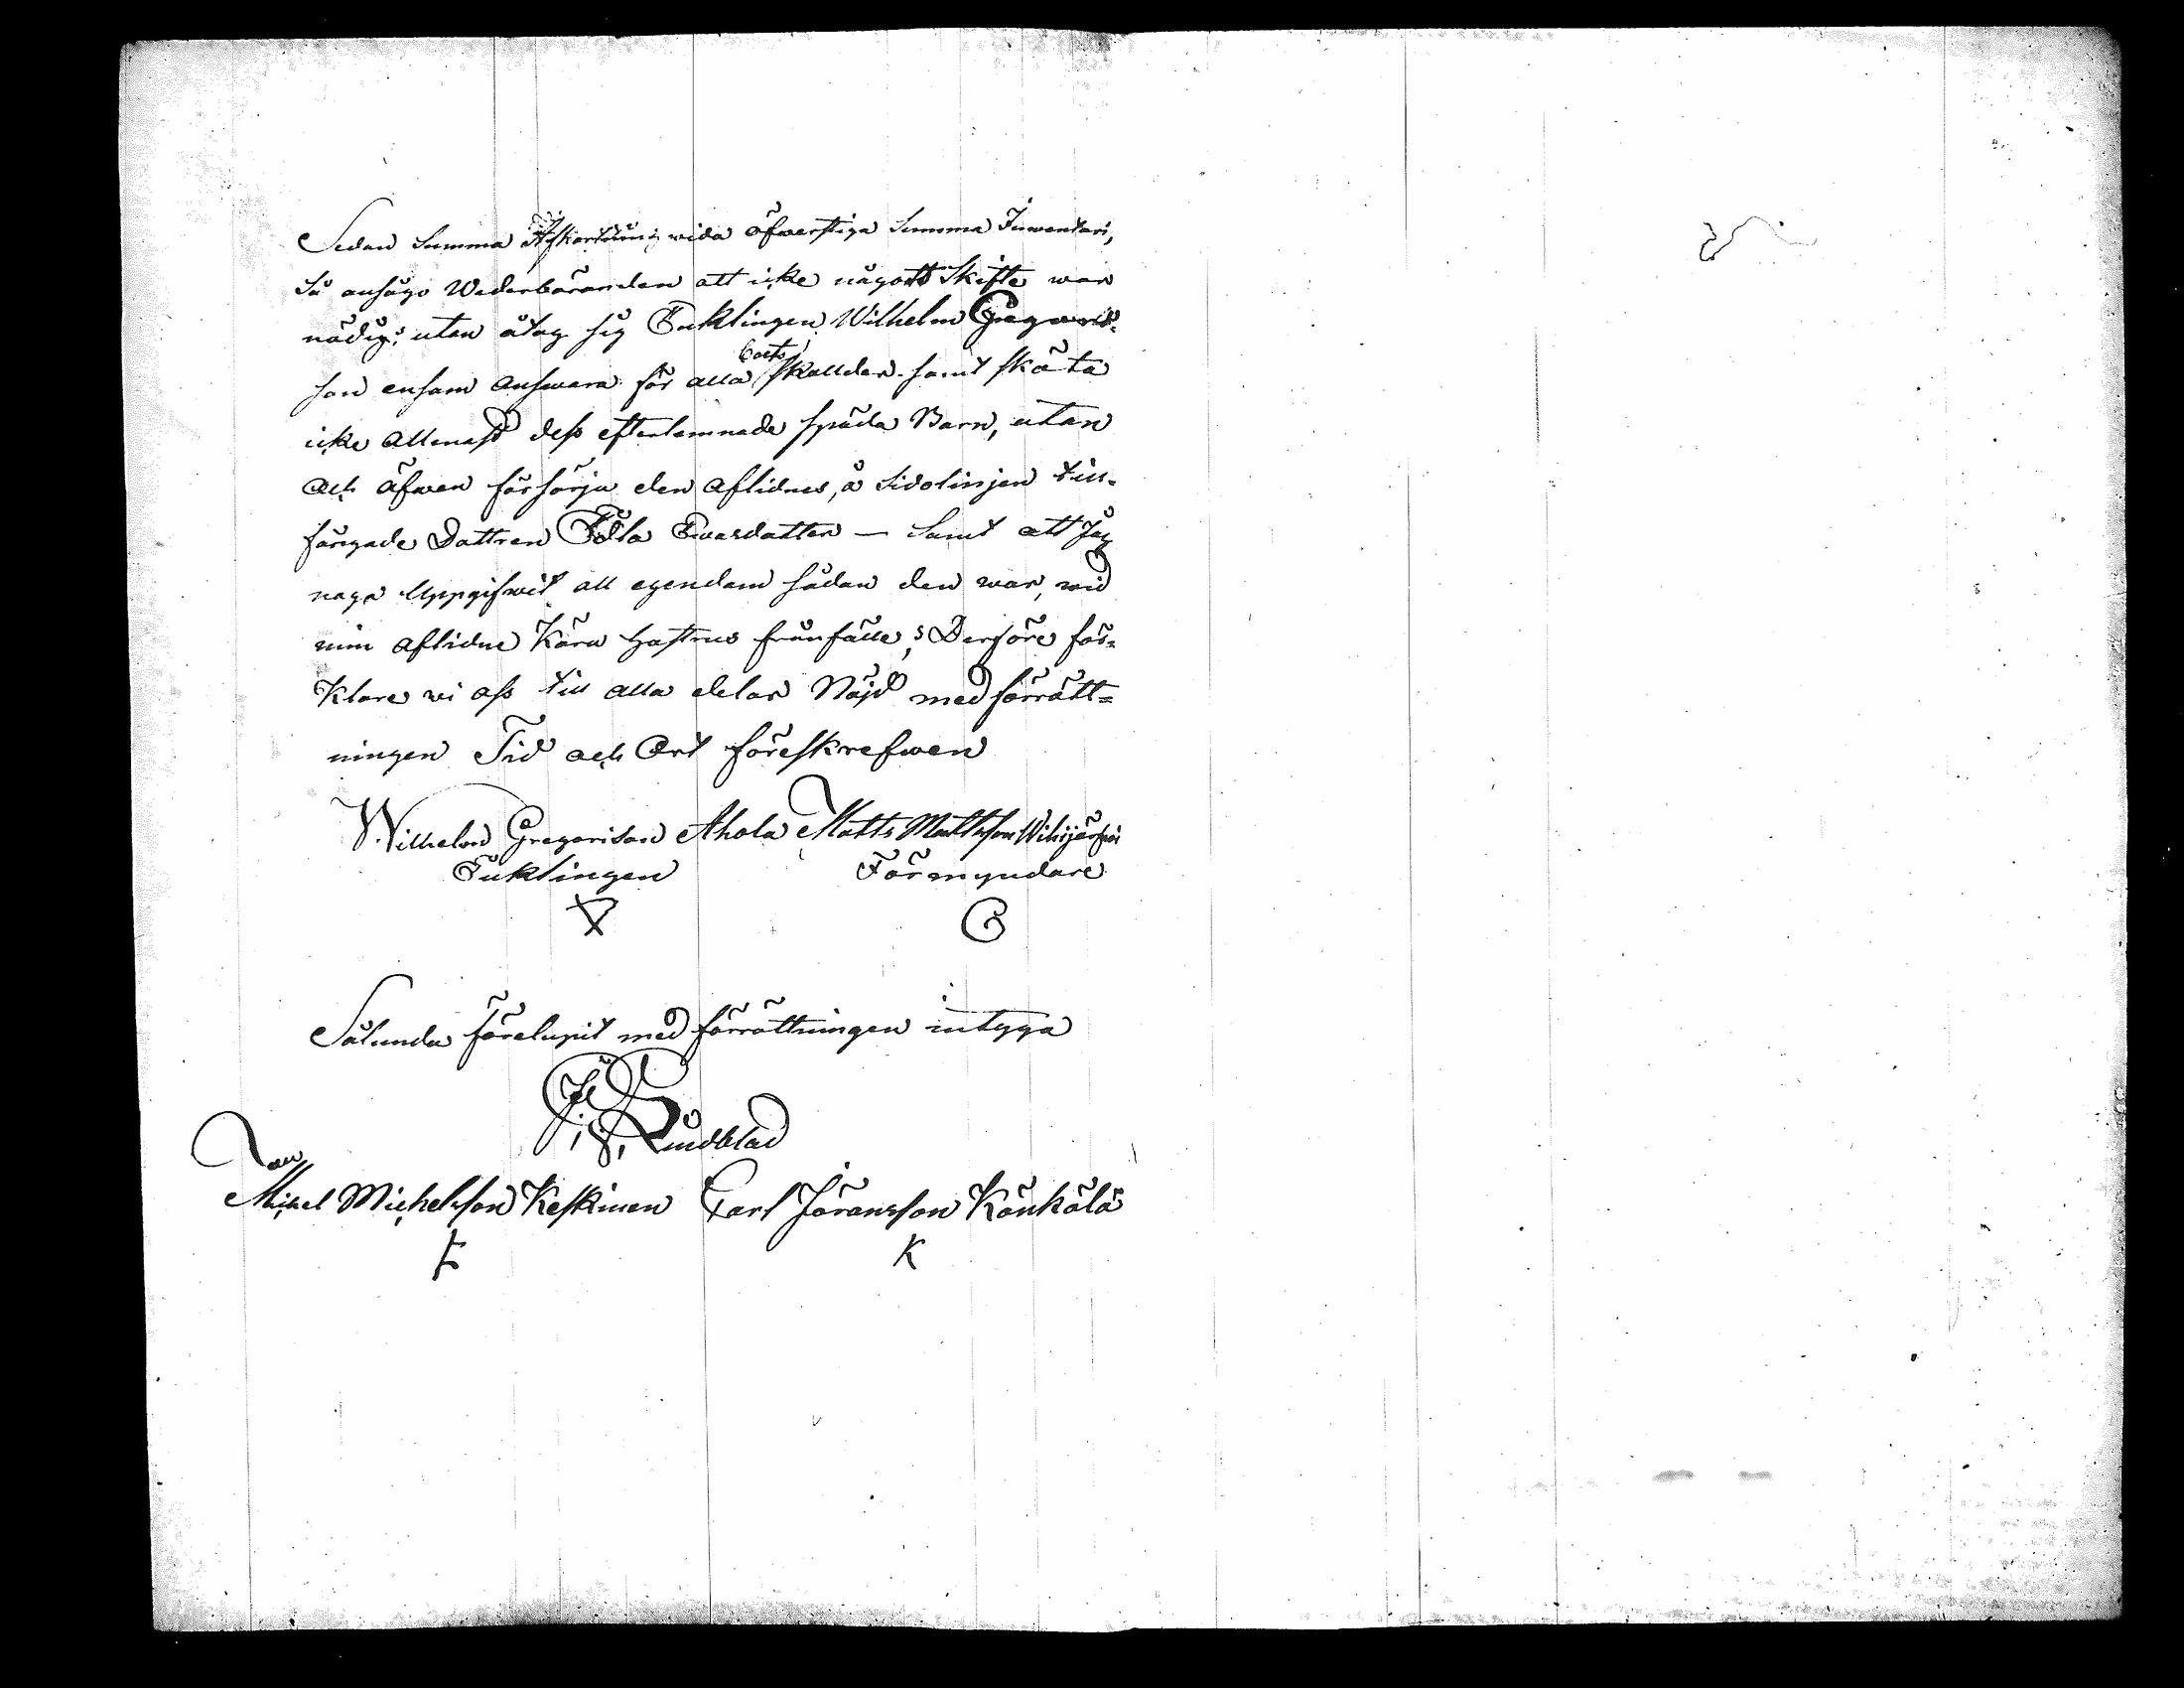 Sedan Summa Afkortning wida öfwerstiga Summa Inwentari,
Så ansågo Wederböranden att icke något Skifte war
nödig: utan åtog sig Enklingen Wilhelm Gregoris-
son ensam answara för alla boets skulder samt sköta
icke allenast dess efterlemnade späda Barn, utan
och äfwen försörja den aflidnes, å Sidolinjen till-
fångade Dottren Edla Ewasdotter — Samt att Jag
noga Uppgifwit all egendom sådan den war, wid
min aflidne Kära hustrus frånfälle; Derföre för-
Klare wi oss till alla delar Nöjd med förrätt-
ningen Tid och Ort föreskrefwen
Wilhelm Gregorisson Ahola Matts Mattsson Wihijärfwi
Enklingen Förmyndare
G
Sålunda förelupit med förrättningen intyga
Lindblad
Michel Michelsson Keskinen Carl Jöransson Könkölä
K